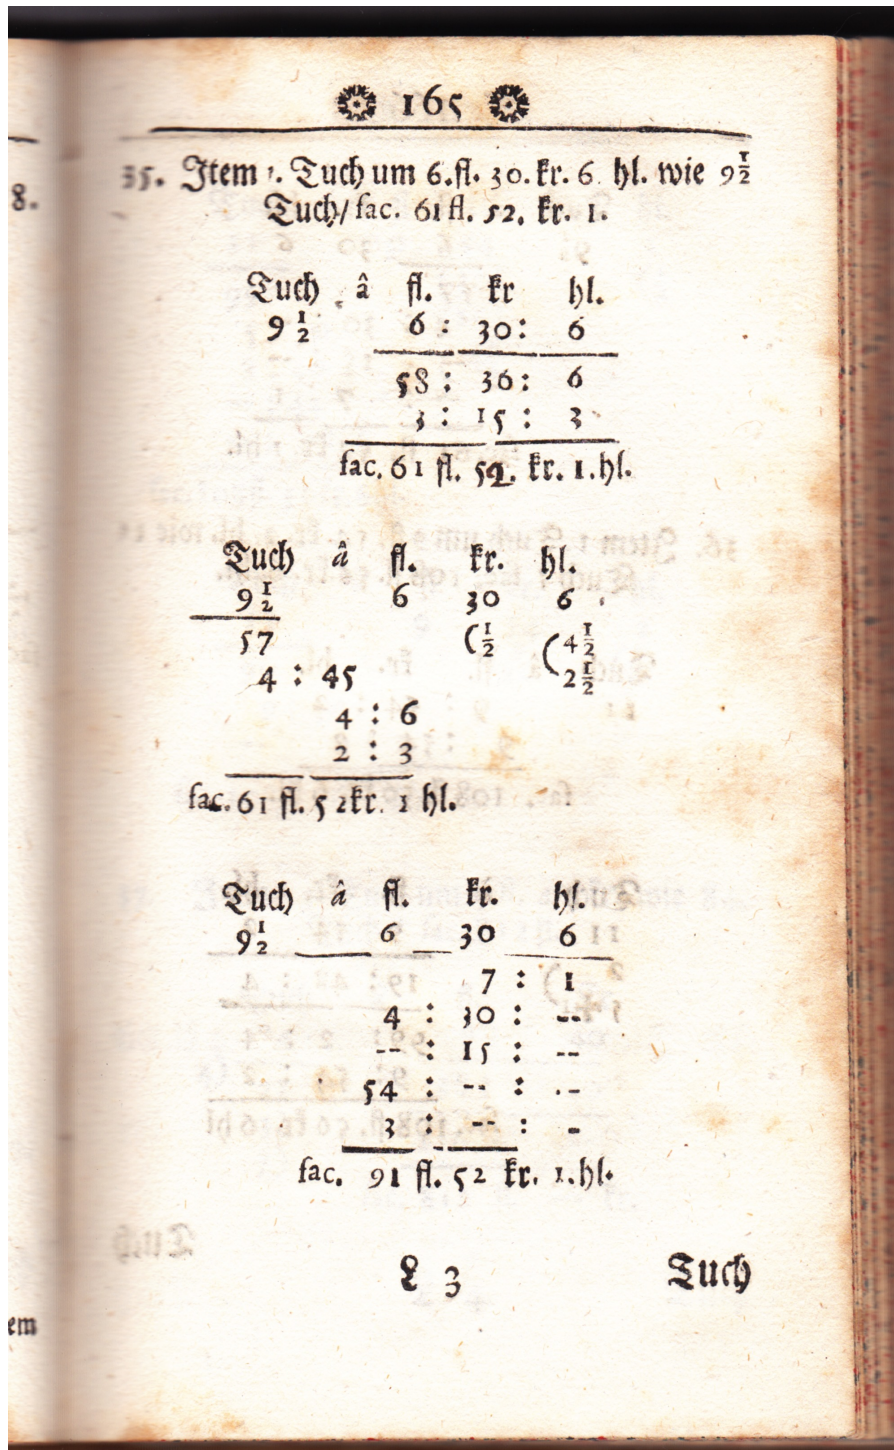 165
35. Item 1. Tuch um 6.fl. 30.kr. 6 hl. wie 9½
Tuch/ fac. 61 fl. 52. kr. 1.
8.
Tuch â fl. kr hl.
9½ 6 : 30: 6
58 : 36: 6
3 : 15 : 3
fac. 61 fl. 52. kr. 1.hl.
Tuch â fl. kr. hl.
9½ 6 30 6
57 (½ (4½
2½
4 : 45
4 : 6
2 : 3
fac. 61 fl. 52kr. 1 hl.
Tuch â fl. kr. hl.
9½ 6 30 6
7 : 1
4 : 30 : --
-- : 15 : --
54 : -- : --
3 : -- : -
fac. 91 fl. 52 kr. 1.hl.
L 3 Tuch
em